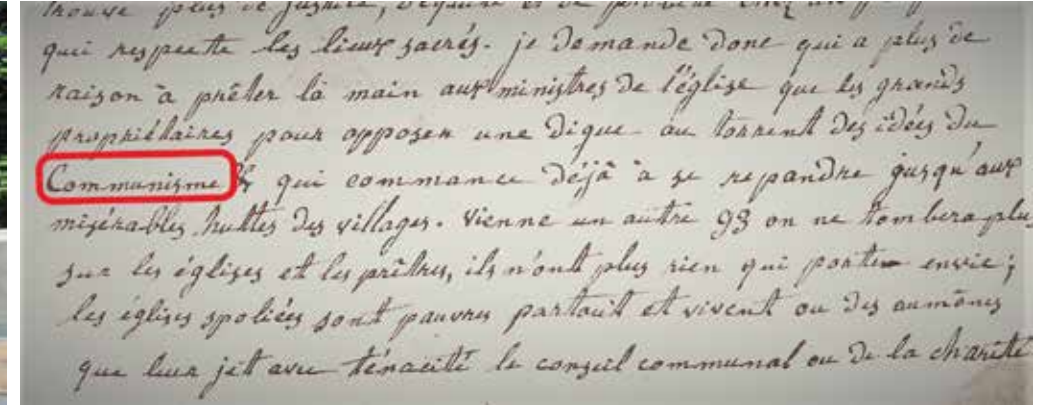 trouve plus de justice, d'équité et de probité chez un
qui respecte les lieux sacrés. je demande donc qui a plus de
raison à prêter la main aux ministres de l'église que les grands
propriétaires pour opposer une digue au torrent des idées du
Communisme qui commance déjà à se repandre jusqu'aux
misérables huttes des villages. Vienne un autre 93 on ne tombera plus
sur les églises et les prêtres, ils n'ont plus rien qui porte envie;
les églises spoliées sont pauvres partout et vivent ou des aumônes
que leur jett avec ténacité le conseil communal ou de la charité